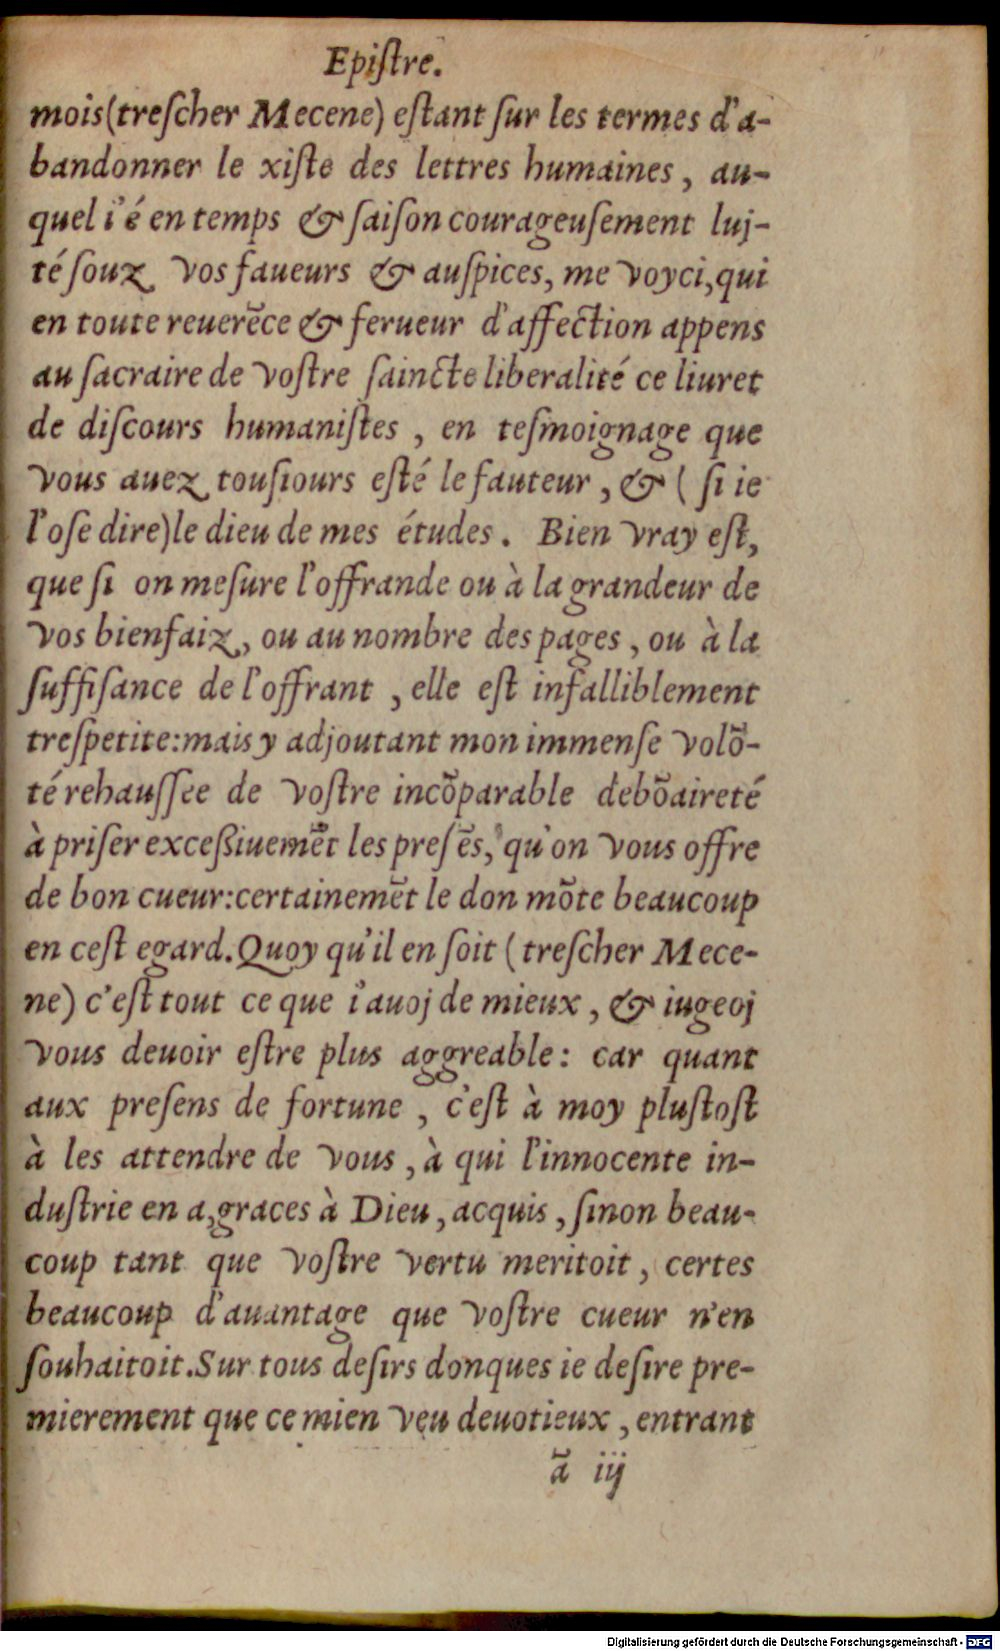 Epiſtre.
mois(treſcher Mecene) eſtant ſur les termes d'a-
bandonner le xiſte des lettres humaines, au-
quel i'é en temps & ſaiſon courageuſement luj-
té ſouz vos faueurs & auſpices, me voyci, qui
en toute reuerẽce & ferueur d'affection appens
au ſacraire de voſtre ſaincte liberalité ce liuret
de diſcours humaniſtes, en teſmoignage que
vous auez touſiours eſté le fauteur, & (ſi ie
l'oſe dire)le dieu de mes études. Bien vray eſt,
que ſi on meſure l'offrande ou à la grandeur de
vos bienfaiz, ou au nombre des pages, ou à la
ſuffiſance de l'offrant, elle eſt infalliblement
treſpetite:mais y adjoutant mon immenſe volõ-
té rehauſſee de voſtre incõparable debõaireté
à priſer exceßiuemẽt les preſẽs, qu'on vous offre
de bon cueur:certainemẽt le don mõte beaucoup
en ceſt egard. Quoy qu'il en ſoit (treſcher Mece-
ne) c'eſt tout ce que i'auoj de mieux, & iugeoj
vous deuoir eſtre plus aggreable: car quant
aux preſens de fortune, c'eſt à moy pluſtoſt
à les attendre de vous, à qui l'innocente in-
duſtrie en a, graces à Dieu, acquis, ſinon beau-
coup tant que voſtre vertu meritoit, certes
beaucoup d'auantage que voſtre cueur n'en
ſouhaitoit. Sur tous deſirs donques ie deſire pre-
mierement que ce mien veu deuotieux, entrant
ã iij
Digitalisierung gefördert durch die Deutsche Forschungsgemeinschaft - DFG